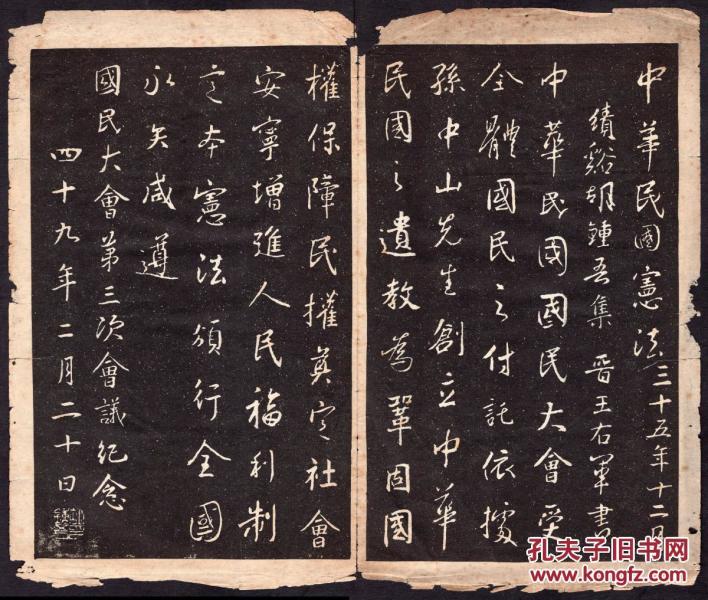 中華民國憲法三十五年十二月
績谿胡鍾吾集 晉王右軍書
中華民國國民大會受
全體國民之付託依據
孫中山先生創立中華
民國之遺教為鞏固國
權保障民權奠定社會
安寧增進人民福利制
定本憲法頒行全國
永矢咸遵
國民大會第三次會議紀念
四十九年二月二十日
孔夫子旧书网
www.kongfz.com